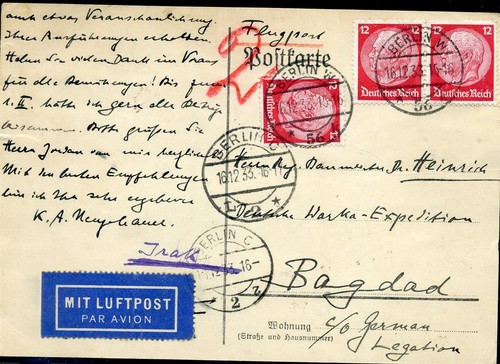 auch etwas Veranschaulichung
Ihrer Ausführungen erhalten.
Haben Sie vielen Dank im Voraus
für alle Bemühungen! Bis zum
1. II. hätte ich gern alle Beiträge
zusammen. Bitte grüßen Sie
Herrn Jordan von mir herzlich.
Mit den besten Empfehlungen
bin ich Ihr sehr ergebener
K. A. Neugebauer.
Flugpost
Postkarte
12 12
Deutsches Reich Deutsches Reich
12
Deutsches Reich
BERLIN W
16.12.33.
56
BERLIN W
56
BERLIN C
16.12.33.16-17
2
Herrn Reg. Baumeister Dr. Heinrich
Deutsche Warka-Expedition
Irak
BERLIN C
2
Bagdad
MIT LUFTPOST
PAR AVION
Wohnung
(Straße und Hausnummer)
c/o German
Legation